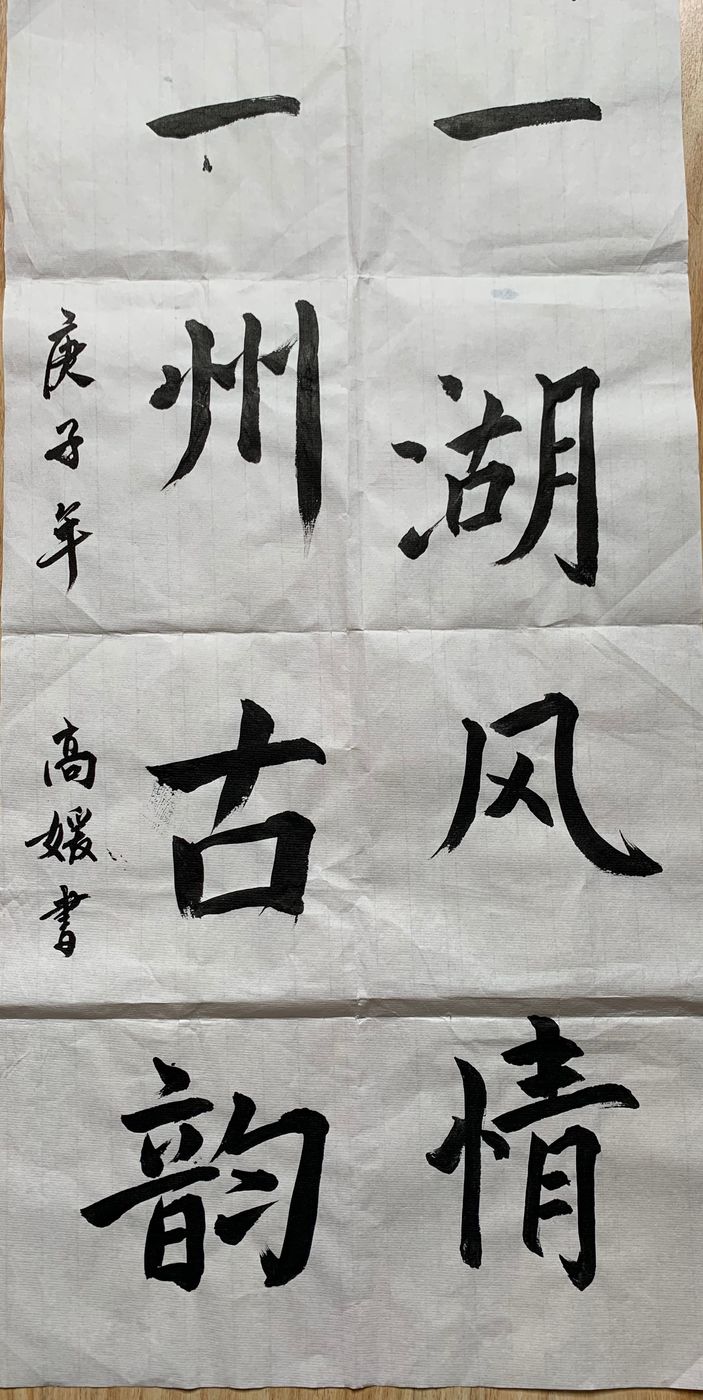 一湖风情
一州古韵
庚子年 高媛书